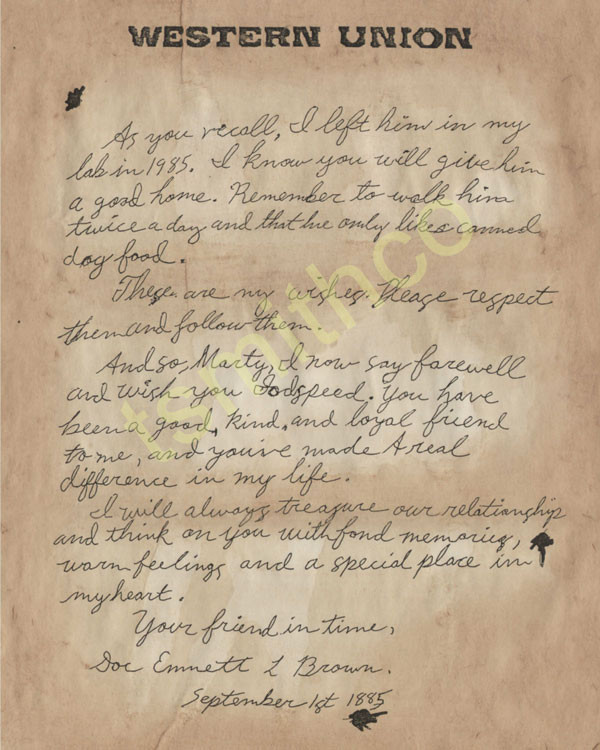 WESTERN UNION
As you recall, I left him in my
lab in 1985. I know you will give him
a good home. Remember to walk him
twice a day and that he only likes canned
dog food.
These are my wishes. Please respect
them and follow them.
And so, Marty, I now say farewell
and wish you Godspeed. You have
been a good, kind, and loyal friend
to me, and you've made A real
difference in my life.
I will always treasure our relationship
and think on you with fond memories,
warm feelings and a special place in
my heart.
Your friend in time,
Doc Emmett L Brown.
September 1st 1885
tsmithco